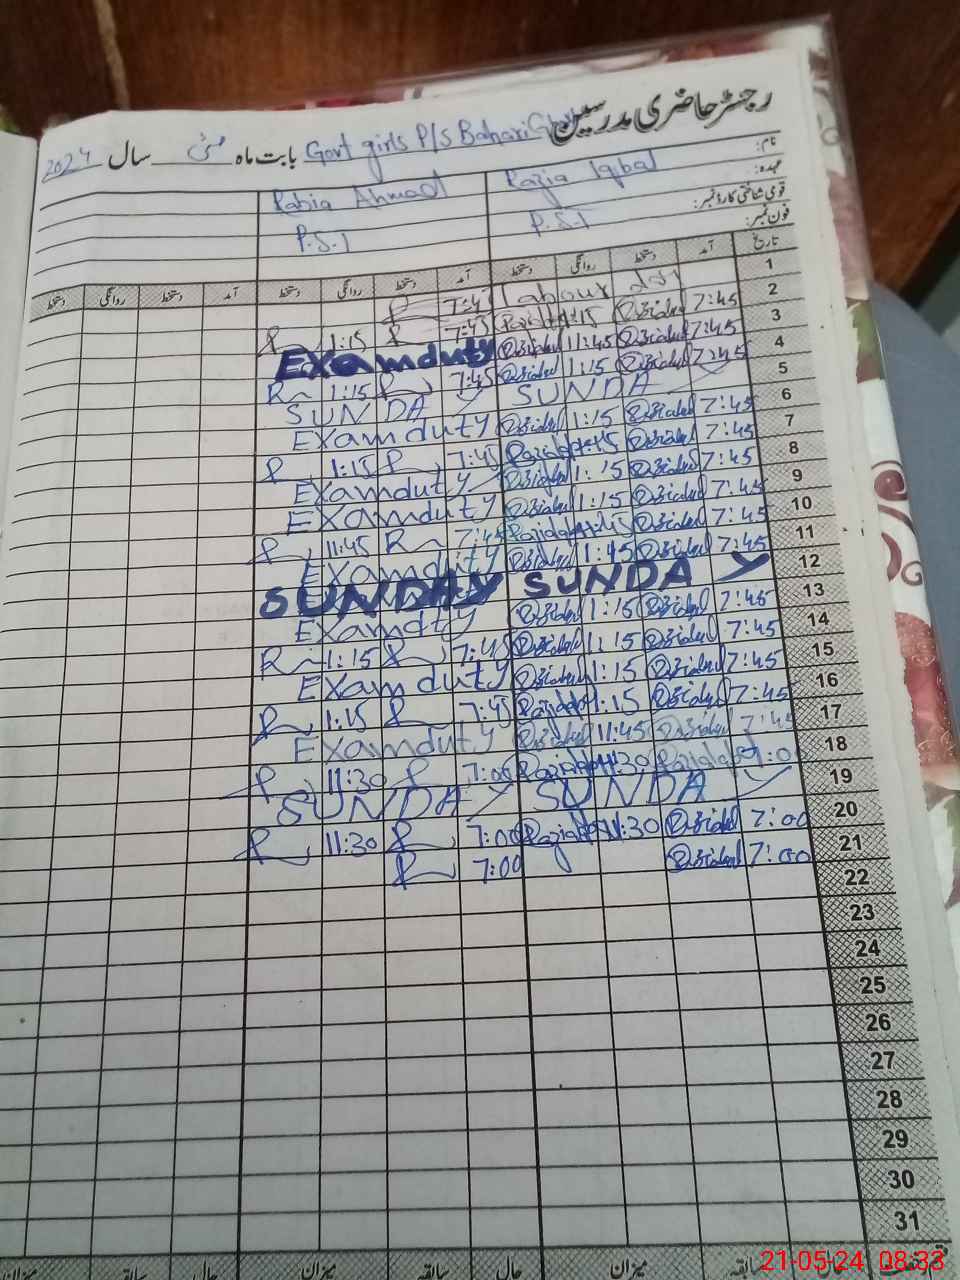 رجسٹر حاضری مدرسین
Govt girls P/S Bahari بابت ماہ مئی سال 2024
نام:
Razia Iqbal Rabia Ahmad
عہدہ:
P.S.T P.S.T
قومی شناختی کارڈ نمبر:
فون نمبر:
تاریخ آمد دستخط روانگی دستخط آمد دستخط روانگی دستخط آمد دستخط روانگی دستخط
1 Labour day 7:45
2 7:45 1:15 7:45 1:15
3 7:45 11:45 Exam duty
4 7:45 1:15 7:45 1:15
5 SUNDAY SUNDAY
6 7:45 1:15 Exam duty
7 7:45 1:15 7:45 1:15
8 7:45 1:15 Exam duty
9 7:45 1:15 Exam duty
10 7:45 11:45 7:45 11:45
11 7:45 1:45 Exam duty
12 SUNDAY SUNDAY
13 7:45 1:15 Exam dty
14 7:45 1:15 7:45 1:15
15 7:45 1:15 Exam duty
16 7:45 1:15 7:45 1:15
17 7:45 11:45 Exam duty
18 7:00 11:30 7:00 11:30
19 SUNDAY SUNDAY
20 7:00 11:30 7:00 11:30
21 7:00 7:00
22
23
24
25
26
27
28
29
30
31
سابقہ میزان حال سابقہ میزان حال سابقہ میزان
21-05-24 08:33